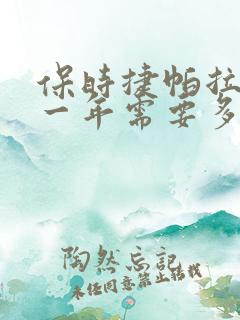 保时捷帕拉
一年需要多
陶然忘记
未经同意禁止转载